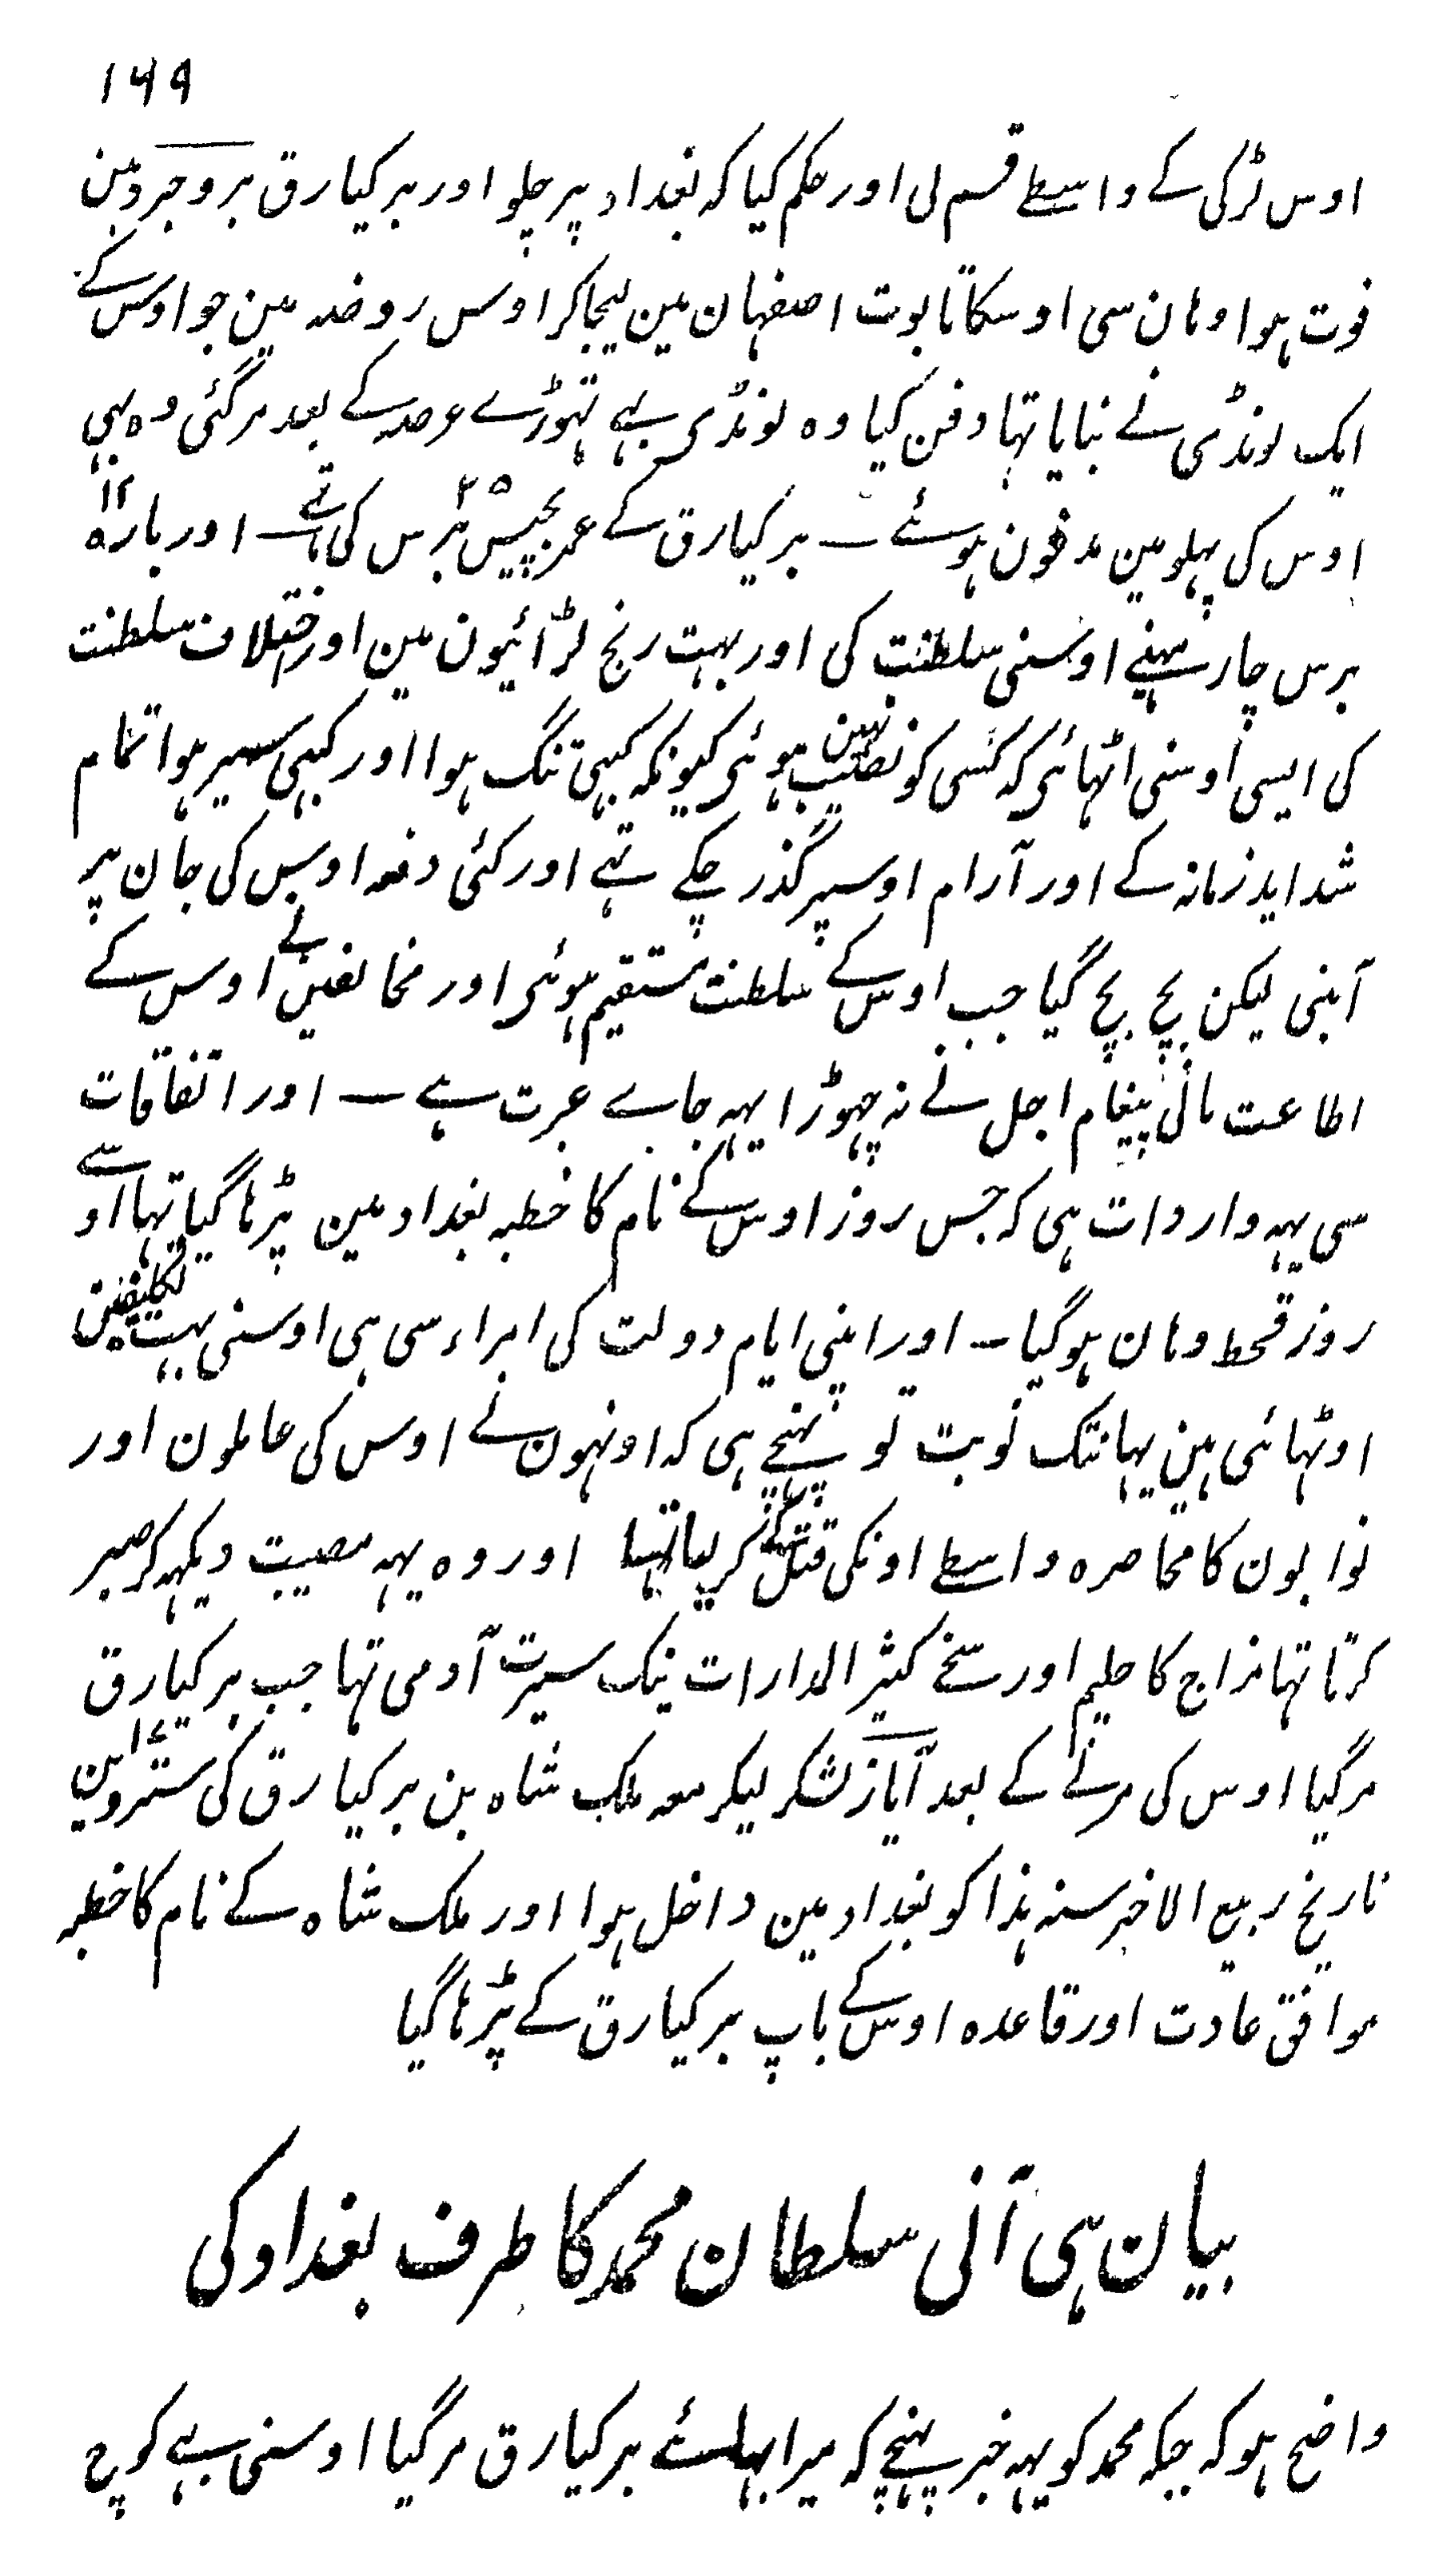 ۱۶۹
اوس لڑکی کے واسطے قسم لی اور حکم کیا کہ بغداد پر چلو اور برکیارق بروجرد مین
فوت ہوا وہان سی اوسکا تابوت اصفہان مین لیجاکر اوس روضہ مین جو اوس کے
ایک لونڈی نے بنایا تہا دفن کیا وہ لونڈی بہے تہوڑے عرصہ کے بعد مر گئی وہ بہی
اوس کی پہلو مین مدفون ہوئے ــ برکیارق کے عمر پچیس ۲۵ برس کی تہے ــ اور بارہ ۱۲
برس چار مہینے اوسنی سلطنت کی اور بہت رنج لڑائیون مین اور اختلاف سلطنت
کی ایسی اوسنی اٹہائی کہ کسی کو نصیب نہین ہوئی کیونکہ کبہی تنگ ہوا اور کبہی سیر ہوا تمام
شداید زمانہ کے اور آرام اوسپر گذر چکے تہے اور کئی دفعہ اوس کی جان پر
آبنی لیکن بچ بچ گیا جب اوس کے سلطنت مستقیم ہوئی اور مخالفین نے اوس کے
اطاعت مانی پیغام اجل نے نہ چہوڑا یہہ جاے عبرت ہے ــ اور اتفاقات
سی یہہ واردات ہی کہ جس روز اوس کے نام کا خطبہ بغداد مین پڑہا گیا تہا اوسے
روز قحط وہان ہوگیا ــ اور اپنی ایام دولت کی امراء سی ہی اوسنی بہت تکلیفین
اوٹہائی ہین یہانتک نوبت تو پہنچے ہی کہ اونہون نے اوس کی عاملون اور
نوابون کا محاصرہ واسطے اونکی قتل کے کر لیا تہا اور وہ یہہ مصیبت دیکہہ کر صبر
کرتا تہا مزاج کا حلیم اور سخے کثیر المدارات نیک سیرت آدمی تہا جب برکیارق
مرگیا اوس کی مرنے کے بعد آیاز لشکر لیکر معہ ملک شاہ بن برکیارق کی سترہوین ۱۷
تاریخ ربیع الاخر سنہ ہذا کو بغداد مین داخل ہوا اور ملک شاہ کے نام کا خطبہ
موافق عادت اور قاعدہ اوس کے باپ برکیارق کے پڑہا گیا
بیان ہی آنی سلطان محمد کا طرف بغداد کی
واضح ہو کہ جبکہ محمد کو یہہ خبر پہنچے کہ میرا بہائے برکیارق مرگیا اوسنی بہے کوچ